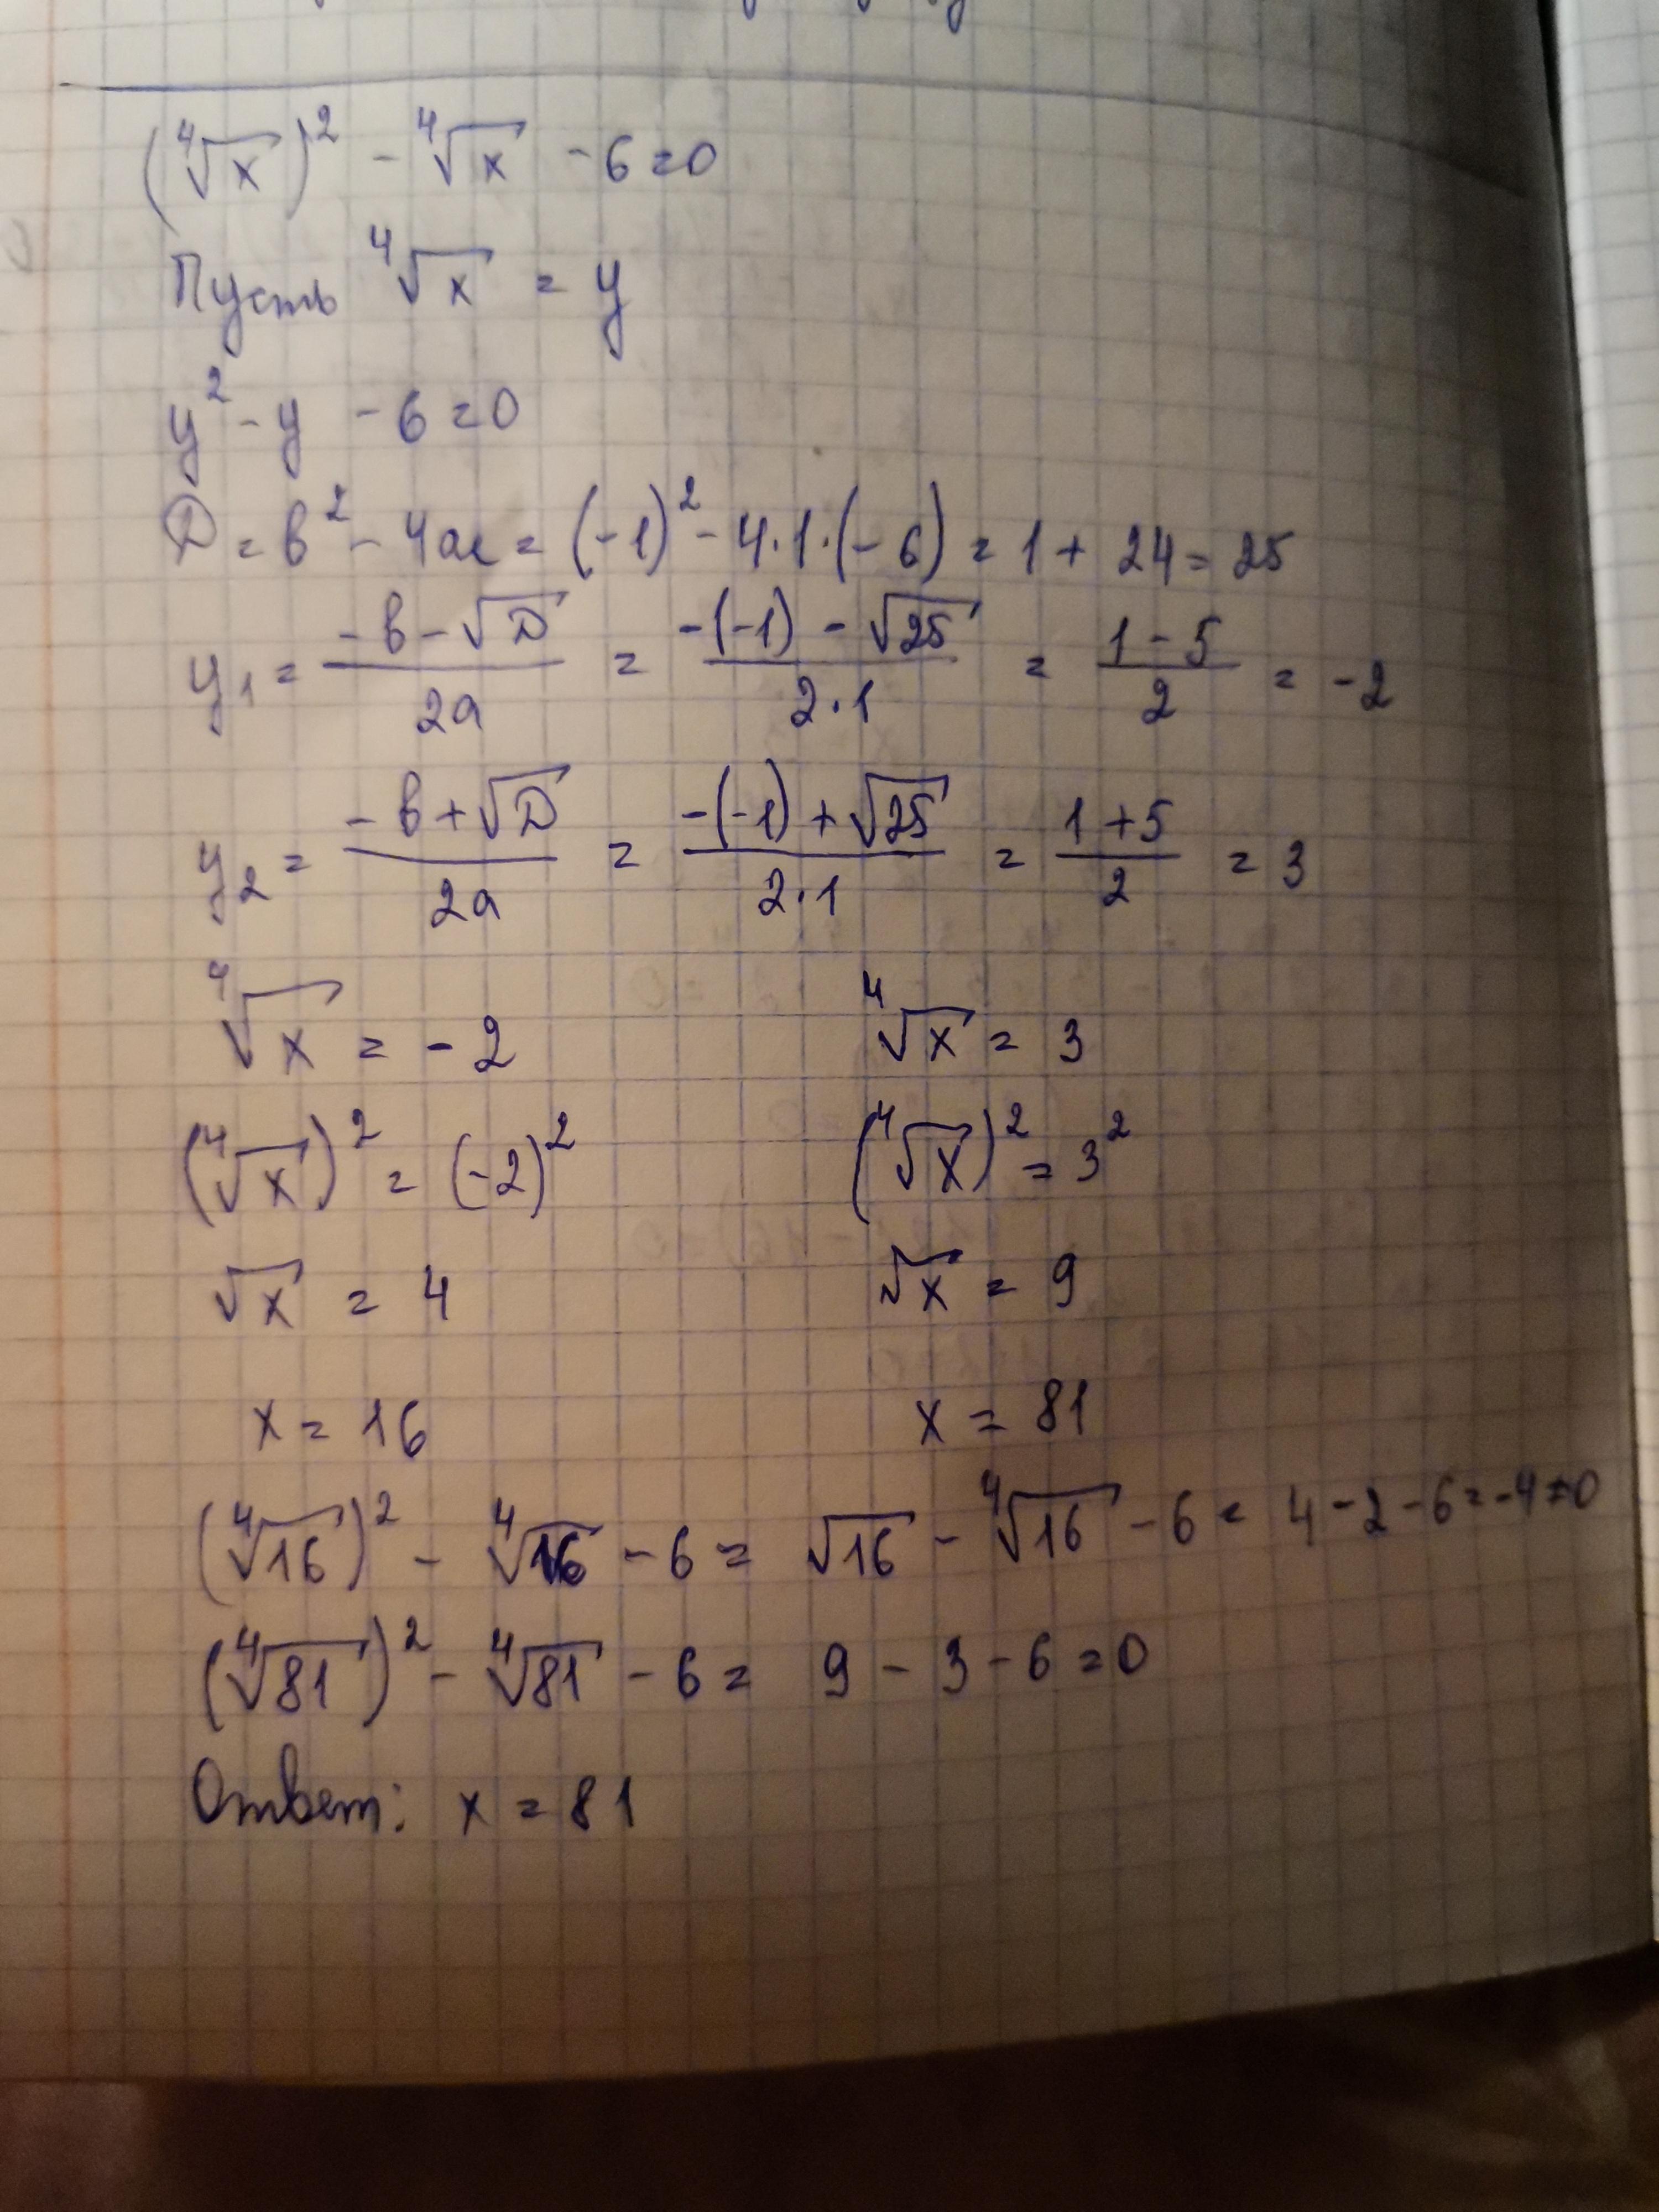 (⁴√x)² - ⁴√x - 6 = 0
Пусть ⁴√x = y
y² - y - 6 = 0
D = b² - 4ac = (-1)² - 4·1·(-6) = 1 + 24 = 25
y₁ = (-b - √D)/(2a) = (-(-1) - √25)/(2·1) = (1 - 5)/2 = -2
y₂ = (-b + √D)/(2a) = (-(-1) + √25)/(2·1) = (1 + 5)/2 = 3
⁴√x = -2 ⁴√x = 3
(⁴√x)² = (-2)² (⁴√x)² = 3²
√x = 4 √x = 9
x = 16 x = 81
(⁴√16)² - ⁴√16 - 6 = √16 - ⁴√16 - 6 = 4 - 2 - 6 = -4 ≠ 0
(⁴√81)² - ⁴√81 - 6 = 9 - 3 - 6 = 0
Ответ: x = 81